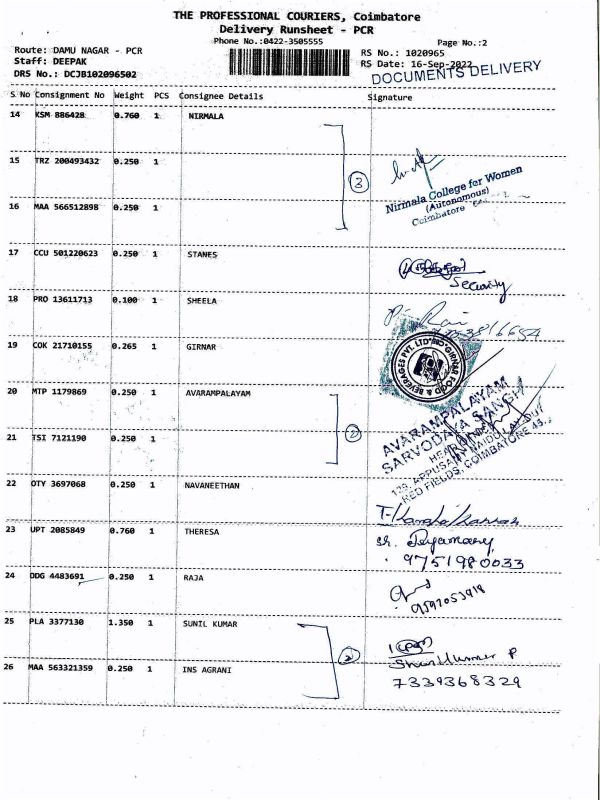 THE PROFESSIONAL COURIERS, Coimbatore
Delivery Runsheet - PCR
Phone No.:0422-3505555
Page No.:2
Route: DAMU NAGAR - PCR
RS No.: 1020965
Staff: DEEPAK
RS Date: 16-Sep-2022
DRS No.: DCJB102096502
DOCUMENTS DELIVERY
S No Consignment No Weight PCS Consignee Details Signature
14 KSM 886428 0.760 1 NIRMALA
15 TRZ 200493432 0.250 1
3
Nirmala College for Women
(Autonomous)
Coimbatore
16 MAA 566512898 0.250 1
17 CCU 501220623 0.250 1 STANES
Security
18 PRO 13611713 0.100 1 SHEELA
19 COK 21710155 0.265 1 GIRNAR
GIRNAR FOOD & BEVERAGES PVT. LTD
20 MTP 1179869 0.250 1 AVARAMPALAYAM
2
AVARAMPALAYAM
SARVODAYA SANGH
21 TSI 7121190 0.250 1
RED FIELDS, COIMBATORE 45.
22 OTY 3697068 0.250 1 NAVANEETHAN
23 UPT 2085849 0.760 1 THERESA
9751980033
24 DDG 4483691 0.250 1 RAJA
25 PLA 3377130 1.350 1 SUNIL KUMAR
2
Sunil Kumar P
26 MAA 563321359 0.250 1 INS AGRANI
7339368329